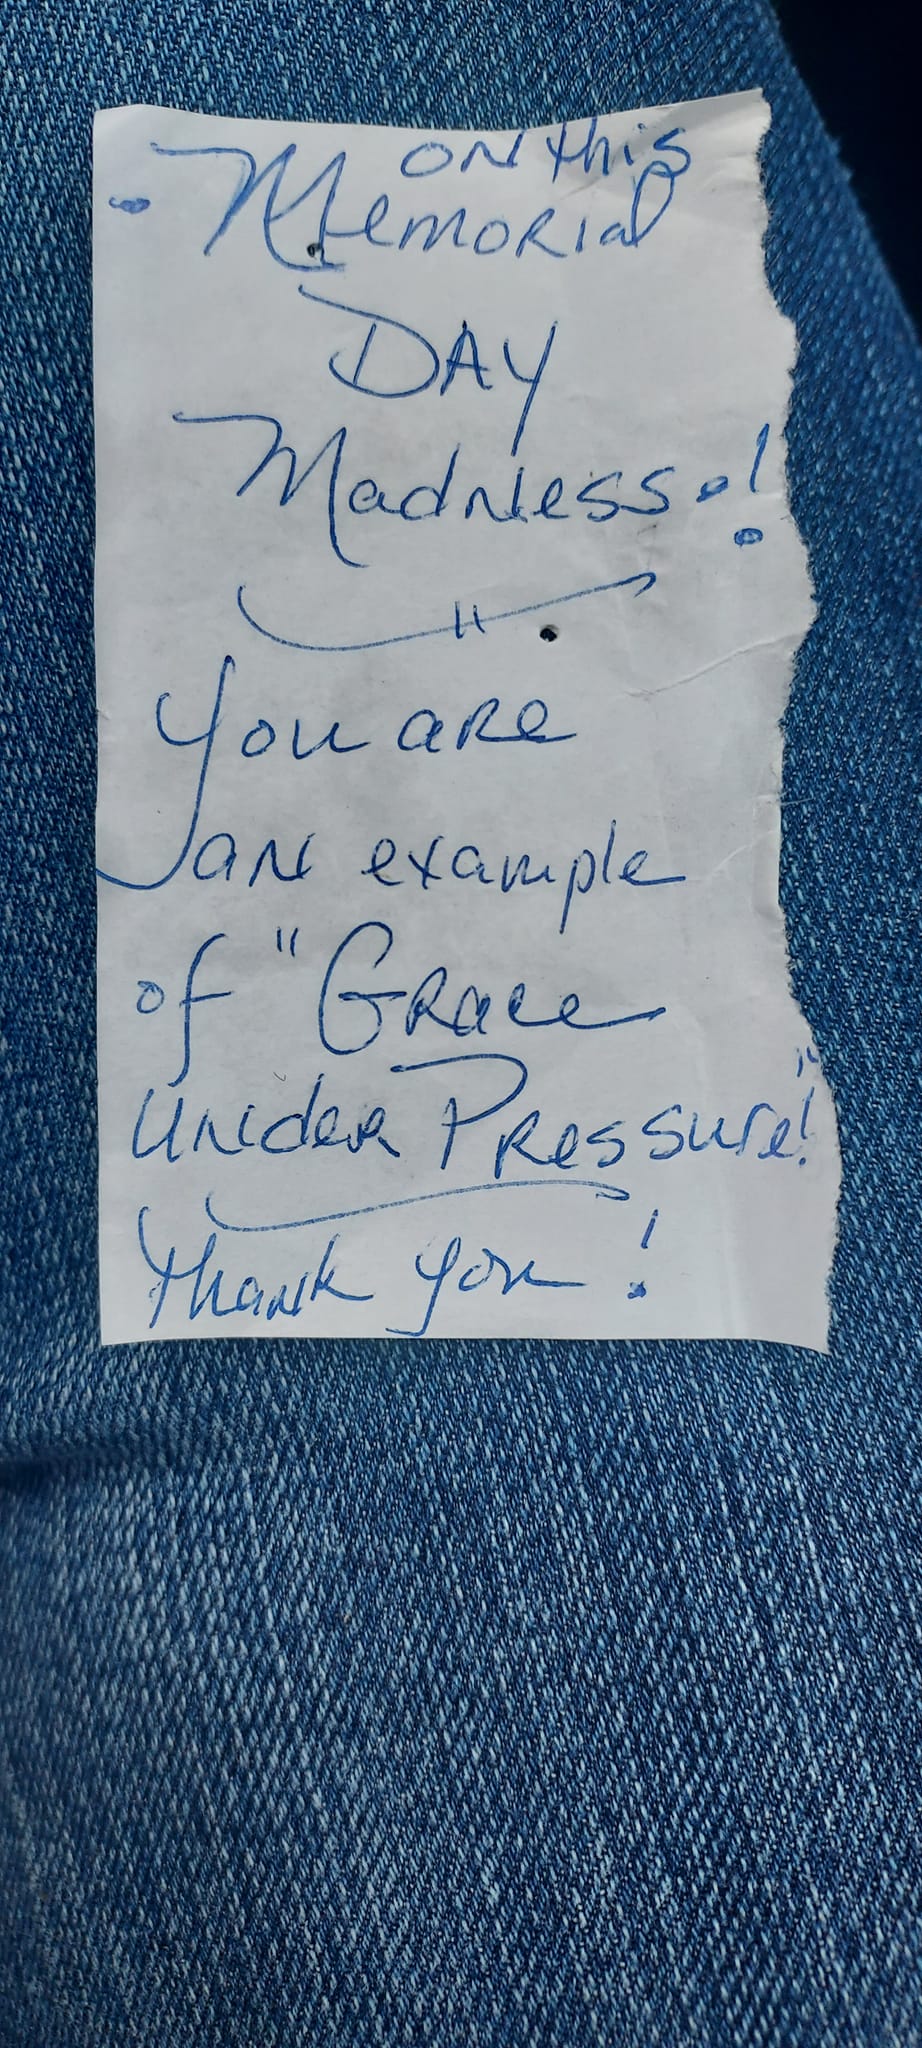 on this
Memorial
DAY
Madness!
"
You are
an example
of "Grace
under Pressure!"
Thank you!